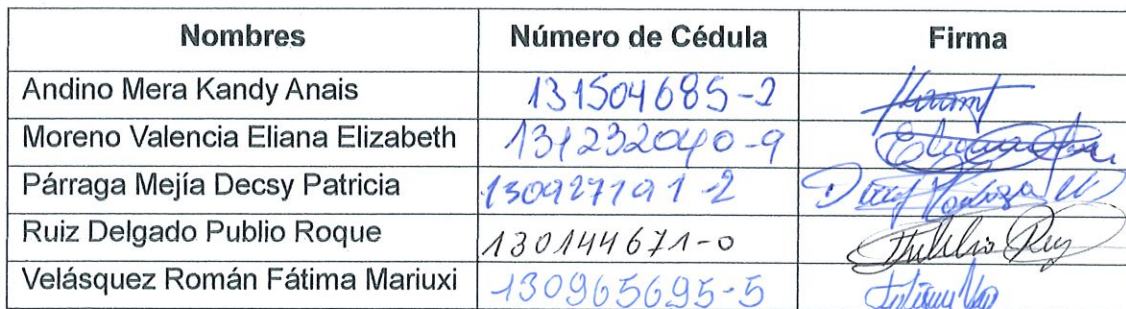 Nombres Número de Cédula Firma
Andino Mera Kandy Anais 131504685-2
Moreno Valencia Eliana Elizabeth 131232040-9
Párraga Mejía Decsy Patricia 130927191-2
Ruiz Delgado Publio Roque 130144671-0 Publio Ruy
Velásquez Román Fátima Mariuxi 130965695-5